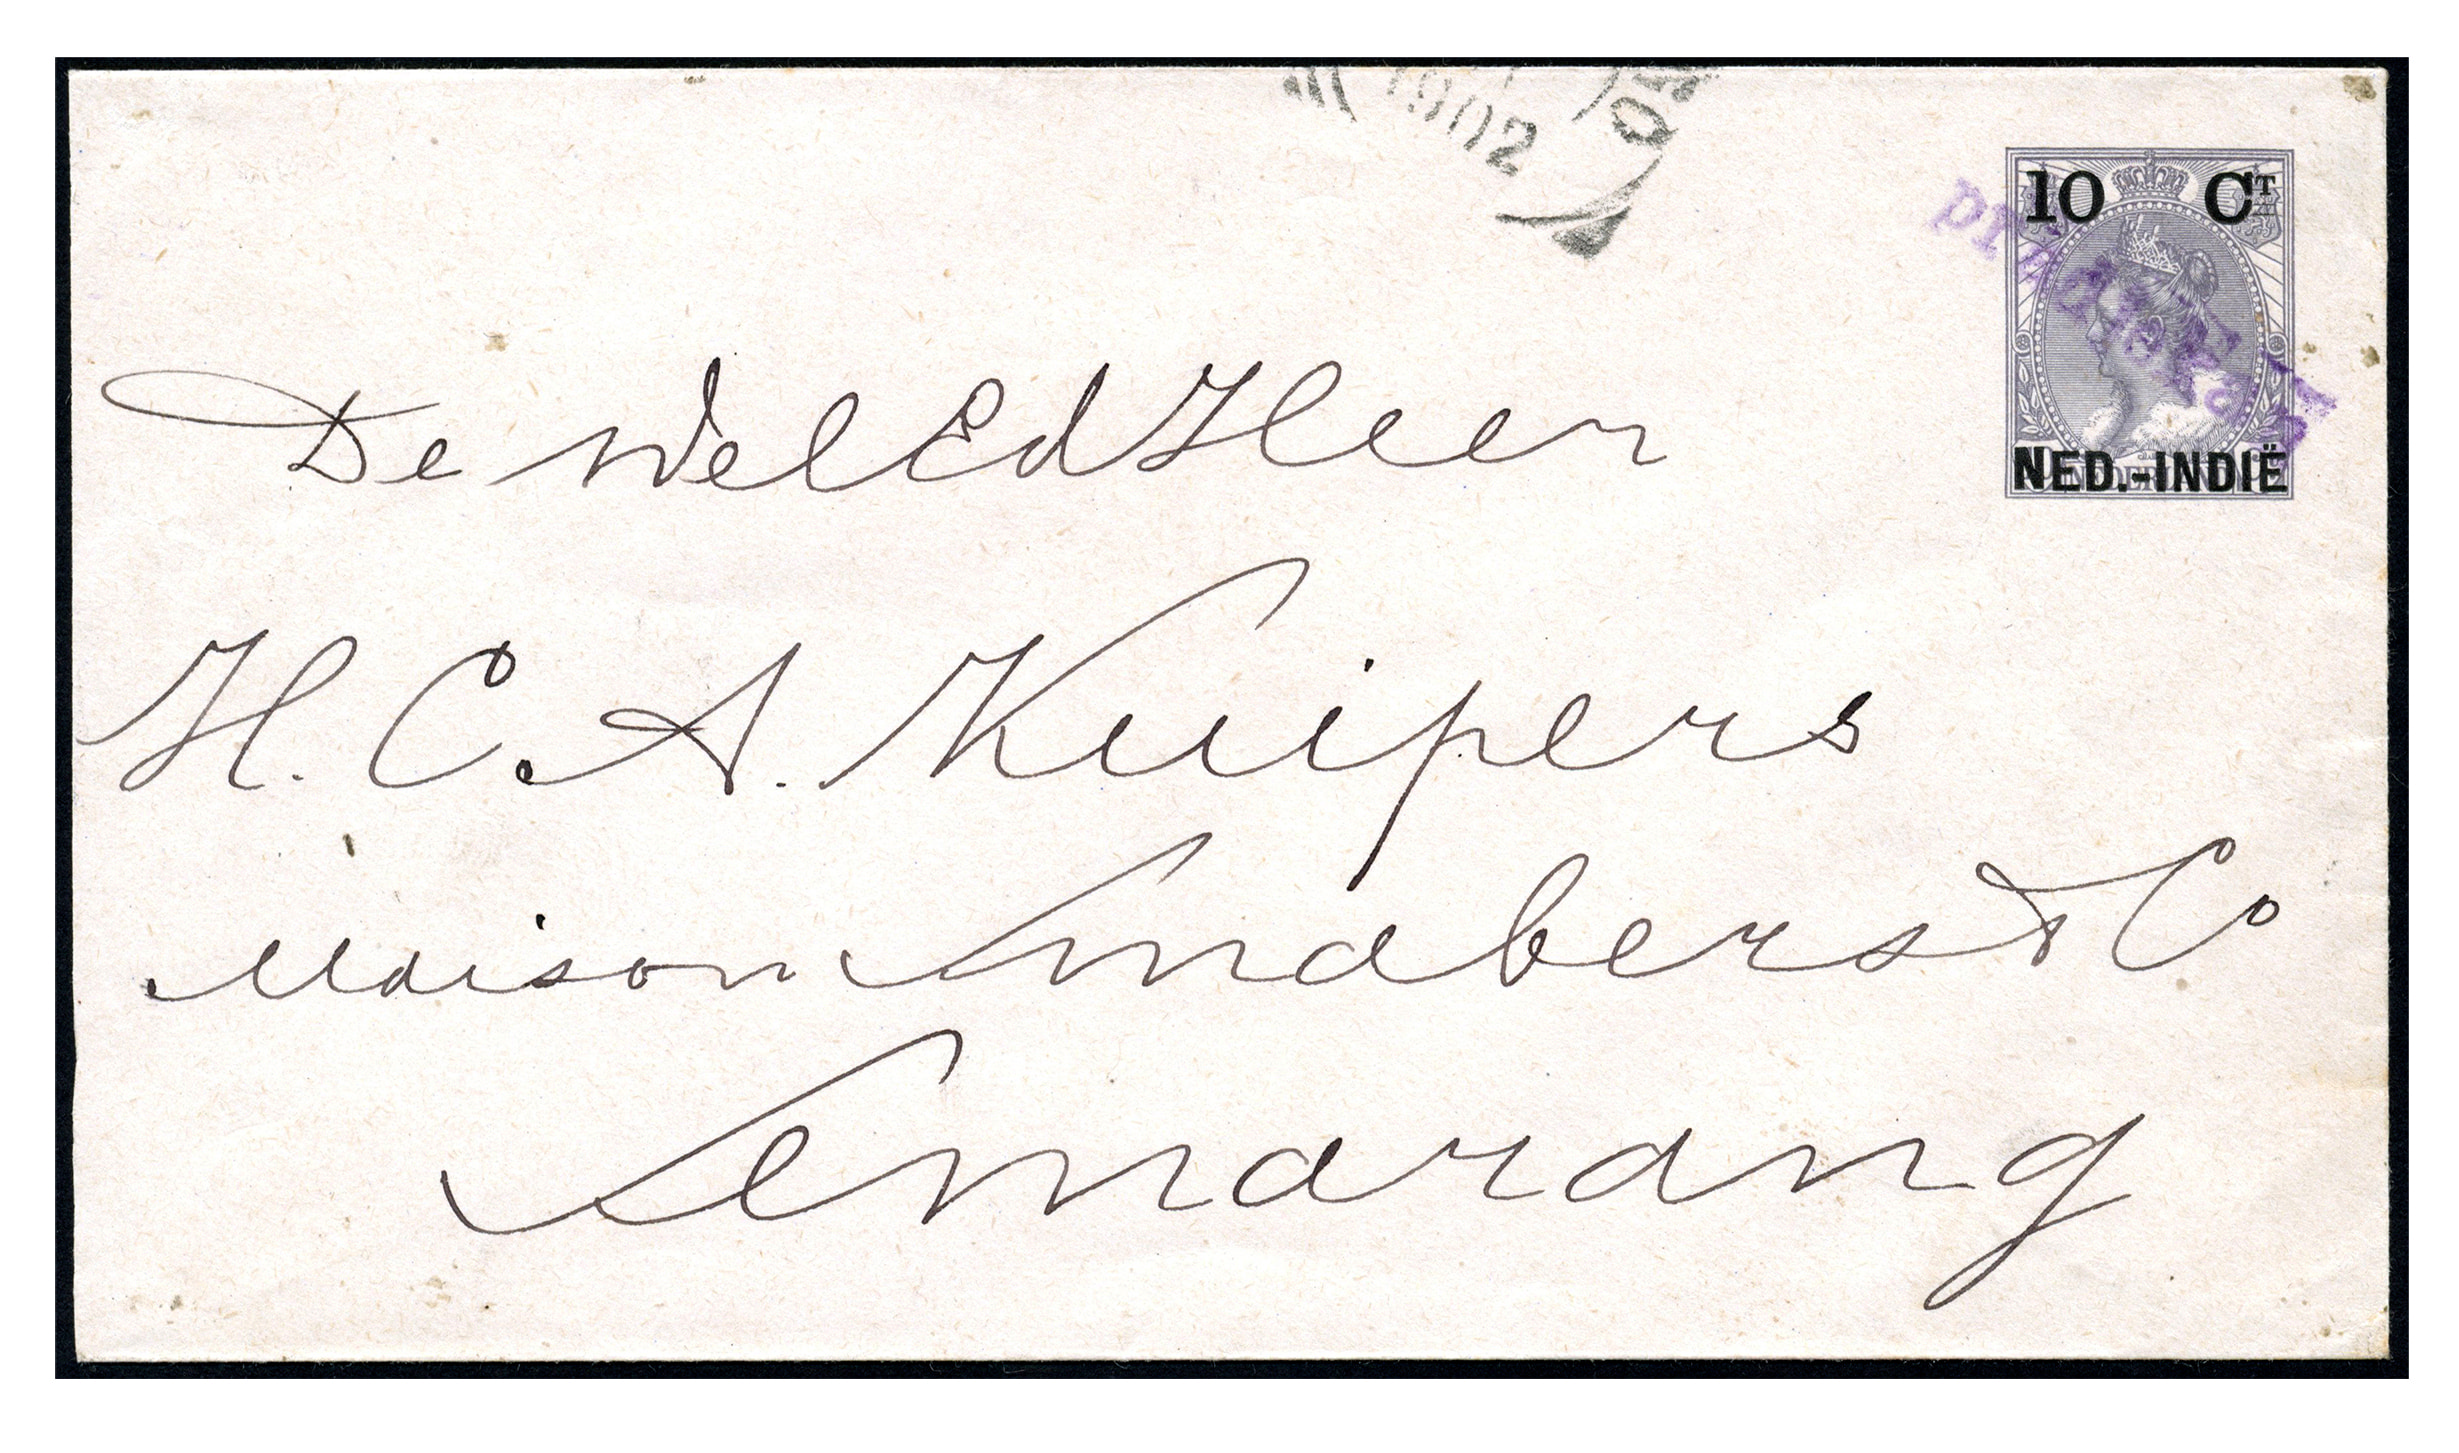 1902
10 CT
NED.-INDIË
De WelEd Heer
H. C. A. Kuipers
Maison Smabers & Co
Semarang